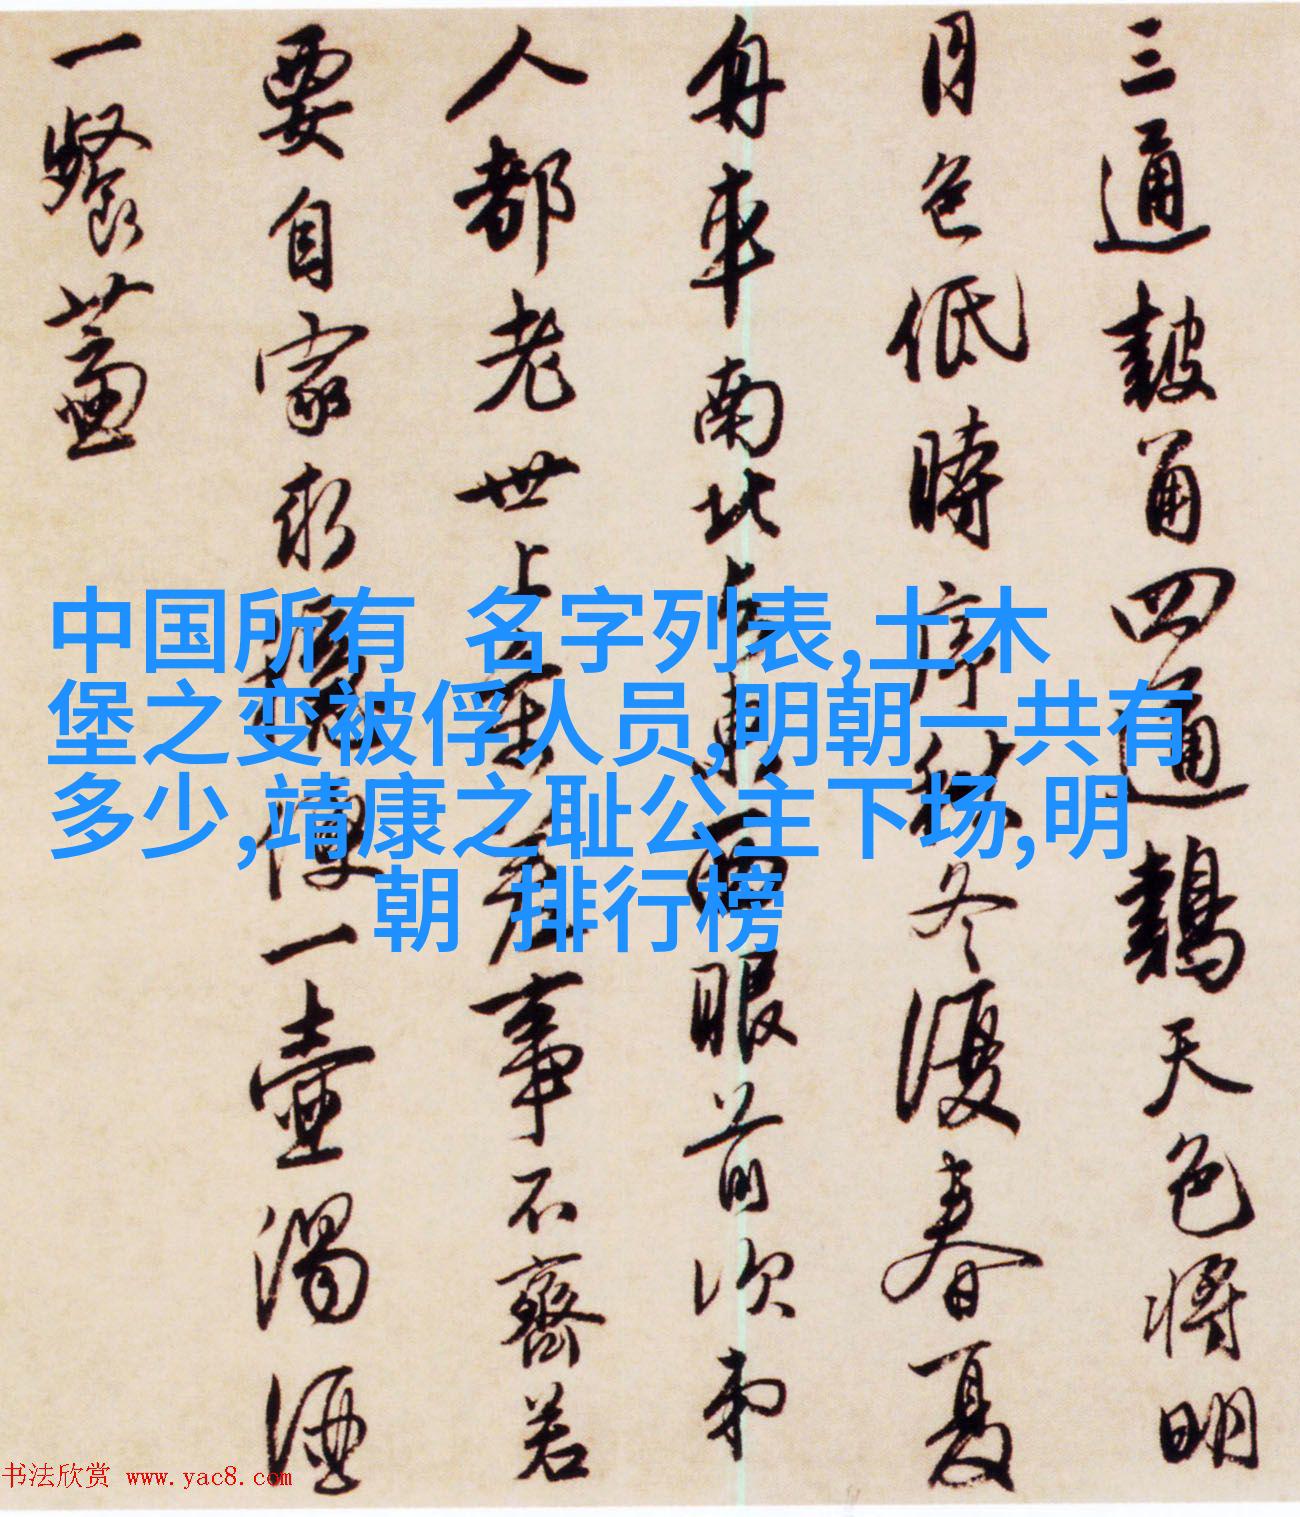 三通鼓角四通鷄天色將明
月色低時序秋冬復春夏
舟車南北與東西眼前次第
人都老世上參差事不齊若
要自家求穩便一壺濁酒
一餐虀
中国所有 名字列表,土木
堡之变被俘人员,明朝一共有
多少,靖康之耻公主下场,明
朝 排行榜
书法欣赏 www.yac8.com